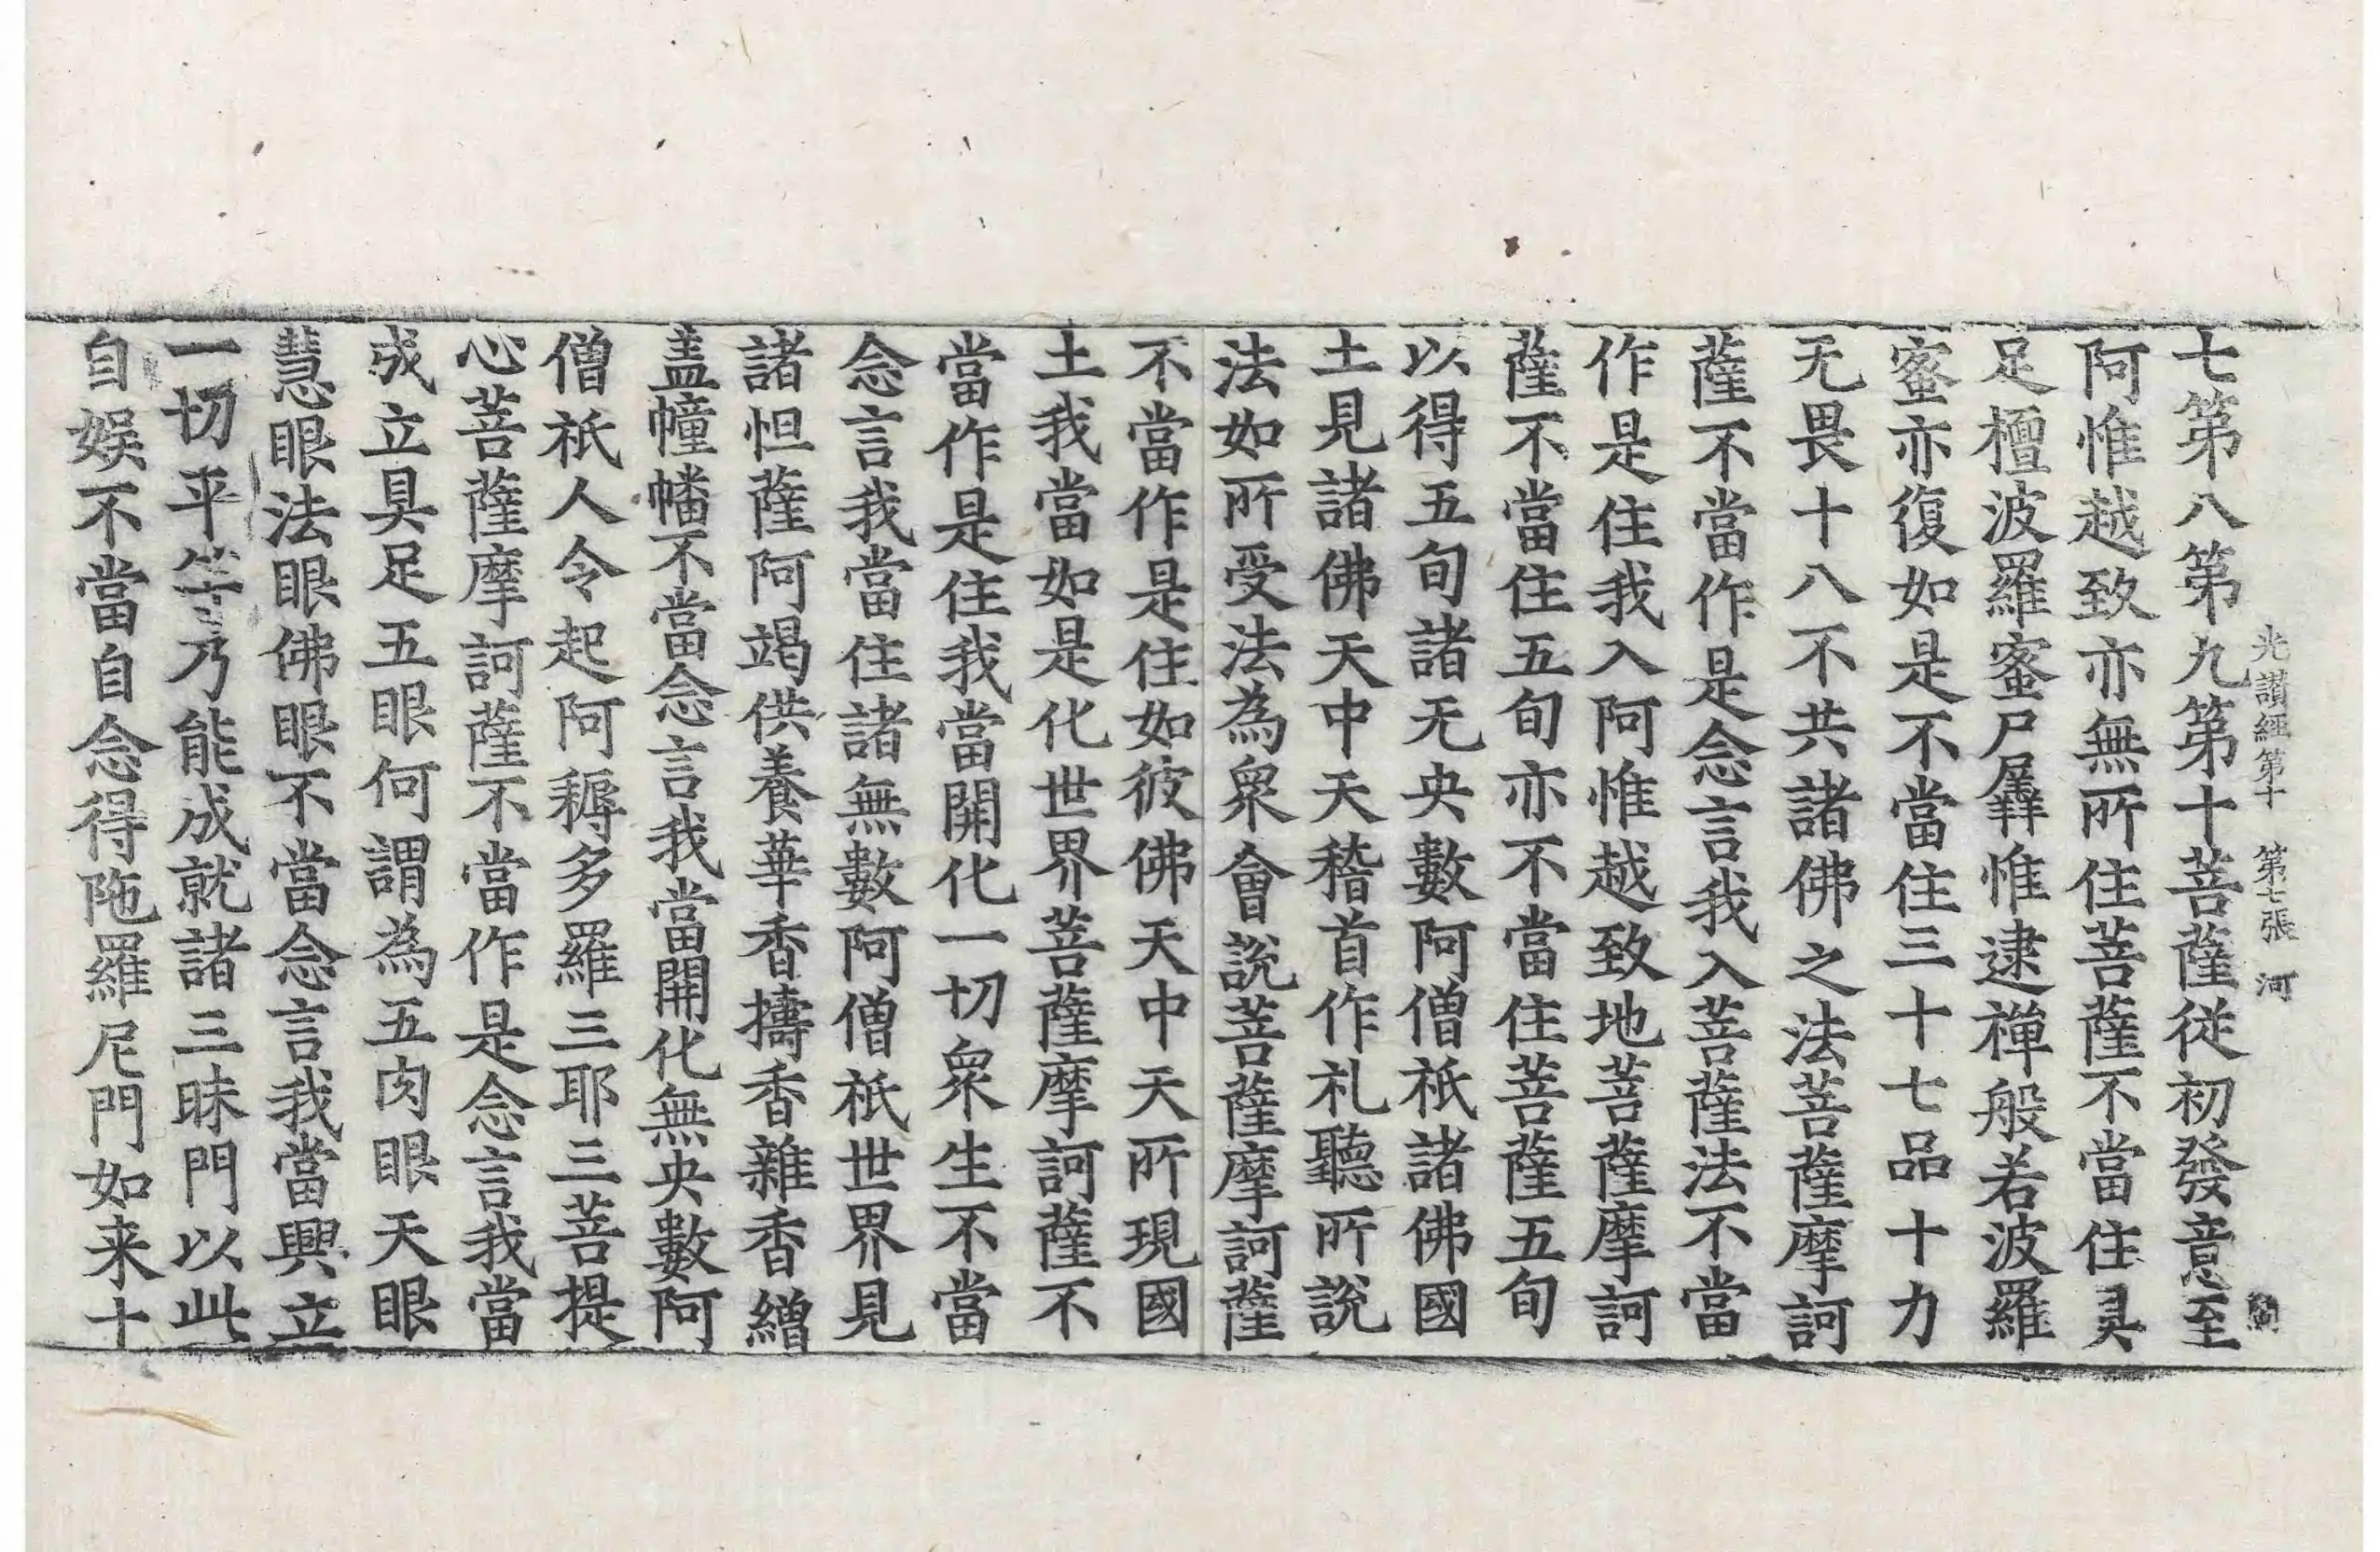 光讃經第十　第七張　河
七第八第九第十菩薩從初發意至
阿惟越致亦無所住菩薩不當住具
足檀波羅蜜尸羼惟逮禪般若波羅
蜜亦復如是不當住三十七品十力
无畏十八不共諸佛之法菩薩摩訶
薩不當作是念言我入菩薩法不當
作是住我入阿惟越致地菩薩摩訶
薩不當住五旬亦不當住菩薩五旬
以得五旬諸无央數阿僧祇諸佛國
土見諸佛天中天稽首作礼聽所說
法如所受法為衆會說菩薩摩訶薩
不當作是住如彼佛天中天所現國
土我當如是化世界菩薩摩訶薩不
當作是住我當開化一切衆生不當
念言我當住諸無數阿僧祇世界見
諸怛薩阿竭供養華香擣香雜香繒
盖幢幡不當念言我當開化無央數阿
僧祇人令起阿耨多羅三耶三菩提
心菩薩摩訶薩不當作是念言我當
成立具足五眼何謂為五肉眼天眼
慧眼法眼佛眼不當念言我當興立
一切平等乃能成就諸三昧門以此
自娱不當自念得陁羅尼門如来十